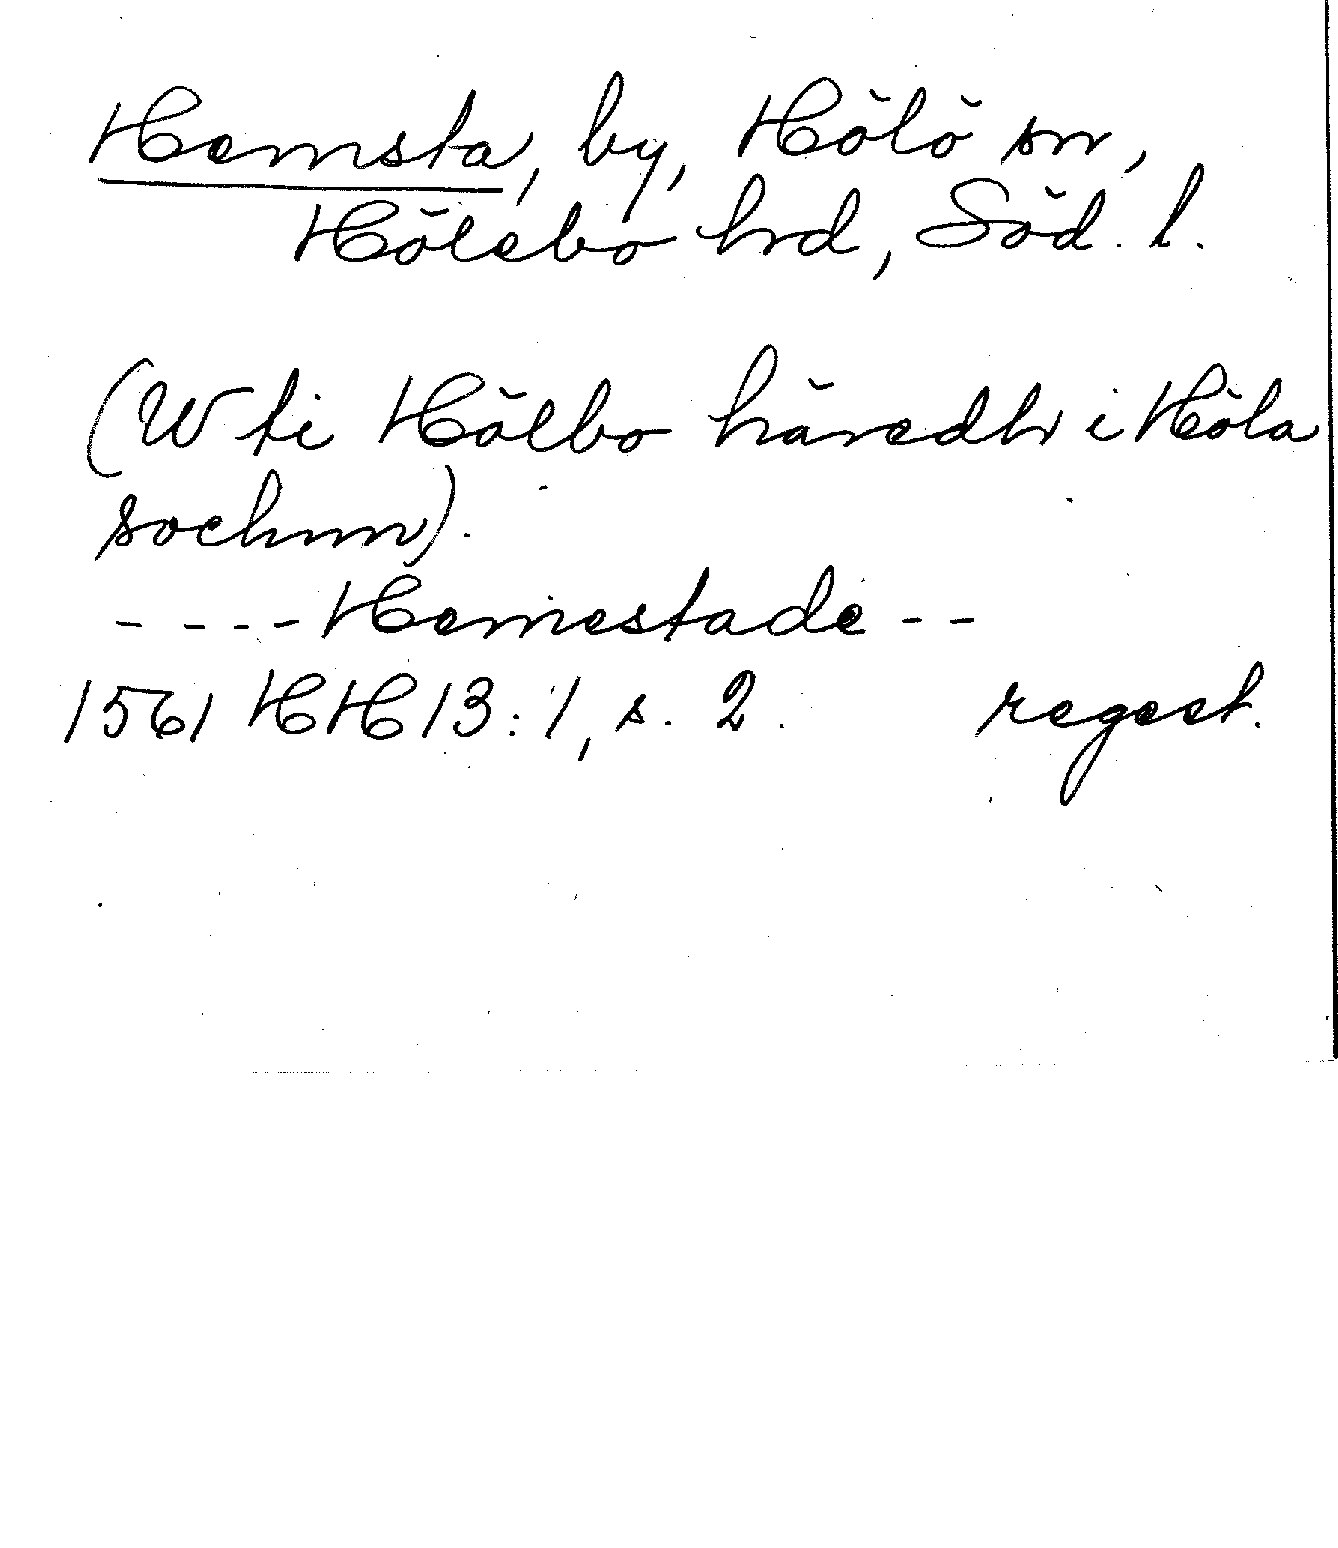 Hemsta, by, Hölö sn,
Hölebo hrd, Söd. l.
(W ti Hölbo häredh i Höla
sochnn).
- - - - Hemestade - -
1561 HH 13:1, s. 2. regest.